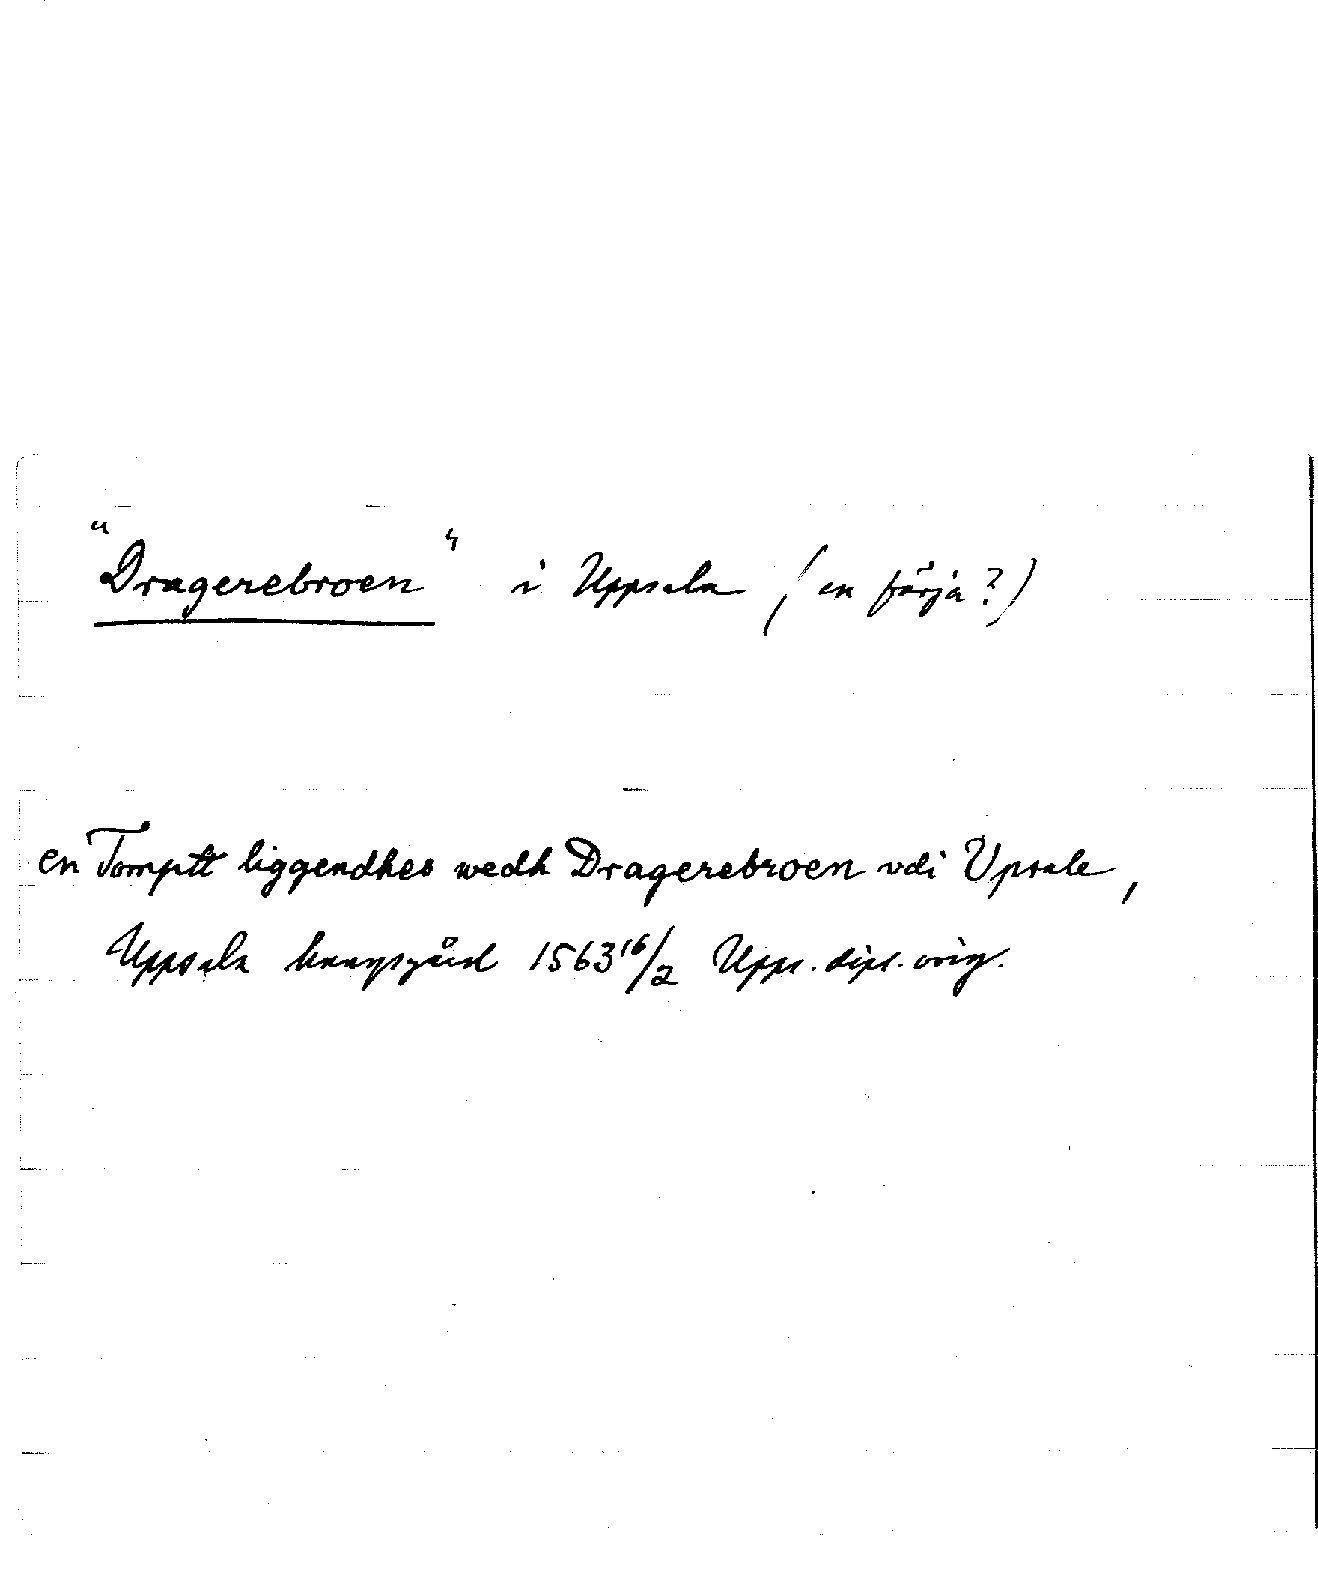 "Dragerebroen" i Uppsala (en färja?)
en Tomptt liggendhes wedh Dragerebroen vdi Upsale,
Uppsala kungsgård 1563 16/2 Upps. dipl. orig.